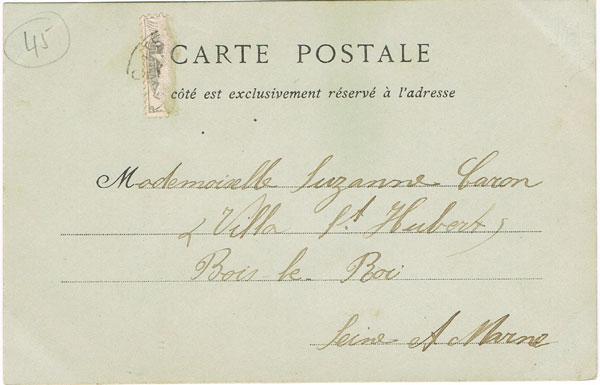 45
CARTE POSTALE
côté est exclusivement réservé à l'adresse
Mademoiselle Suzanne Caron
« Villa St Hubert »
Bois-le-Roi
Seine & Marne